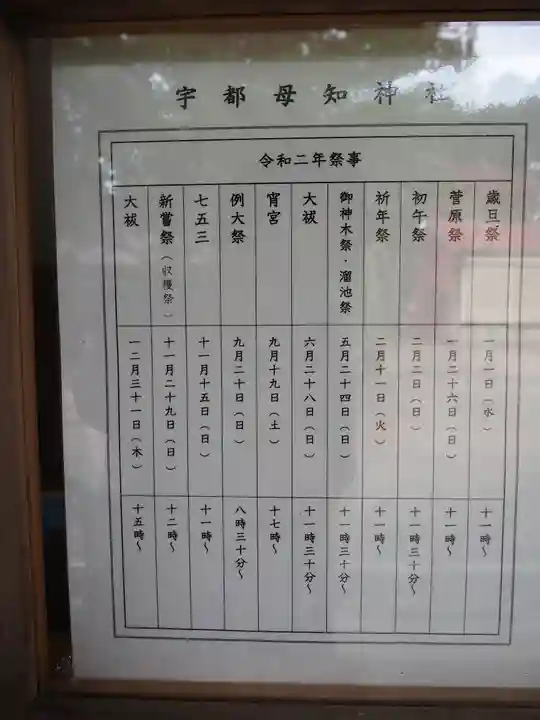 宇都母知神社
令和二年祭事
歳旦祭
一月一日(水)
十一時~
菅原祭
一月二十六日(日)
十一時~
初午祭
二月二日(日)
十一時三十分~
祈年祭
二月十一日(火)
十一時~
御神木祭・溜池祭
五月二十四日(日)
十一時三十分~
大祓
六月二十八日(日)
十一時三十分~
宵宮
九月十九日(土)
十七時~
例大祭
九月二十日(日)
八時三十分~
七五三
十一月十五日(日)
十一時~
新嘗祭(収穫祭)
十一月二十九日(日)
十二時~
大祓
一二月三十一日(木)
十五時~